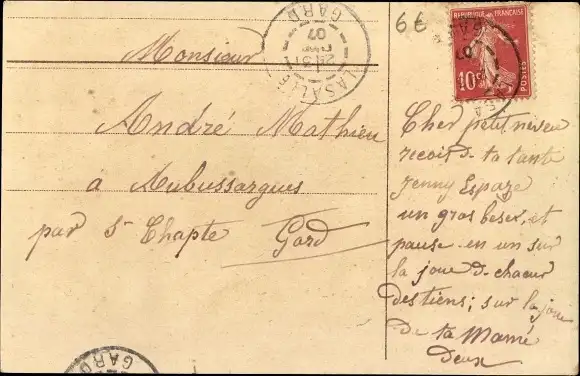 6€
RÉPUBLIQUE FRANÇAISE
10c
POSTES
LASALLE
GARD
07
Monsieur
André Mathieu
a Aubussargues
par St Chapte Gard
Cher petit neveu
recois de ta tante
Jenny Espaze
un gros beser, et
pause en un sur
la joue de chacun
des tiens; sur la joue
de ta Mamé
deux
GARD